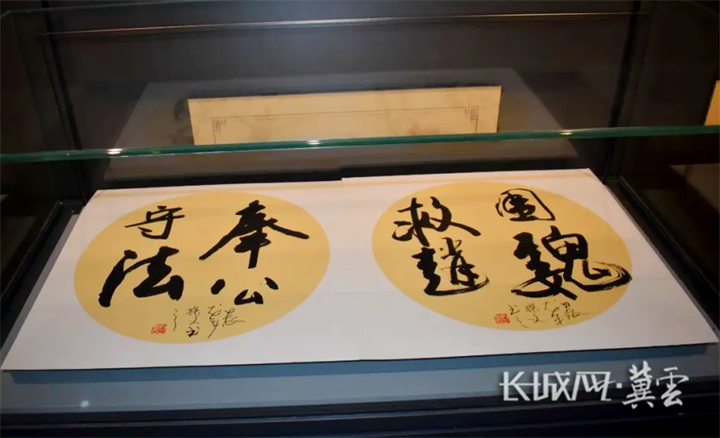 奉公
守法
围魏
救赵
长城网·冀云